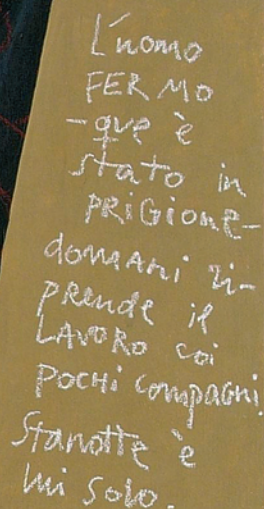 L'uomo
FERMO
- que è
stato in
PRIGIONE-
domani ri-
prende il
LAVORO coi
POCHI compagni.
Stanotte è
lui solo.